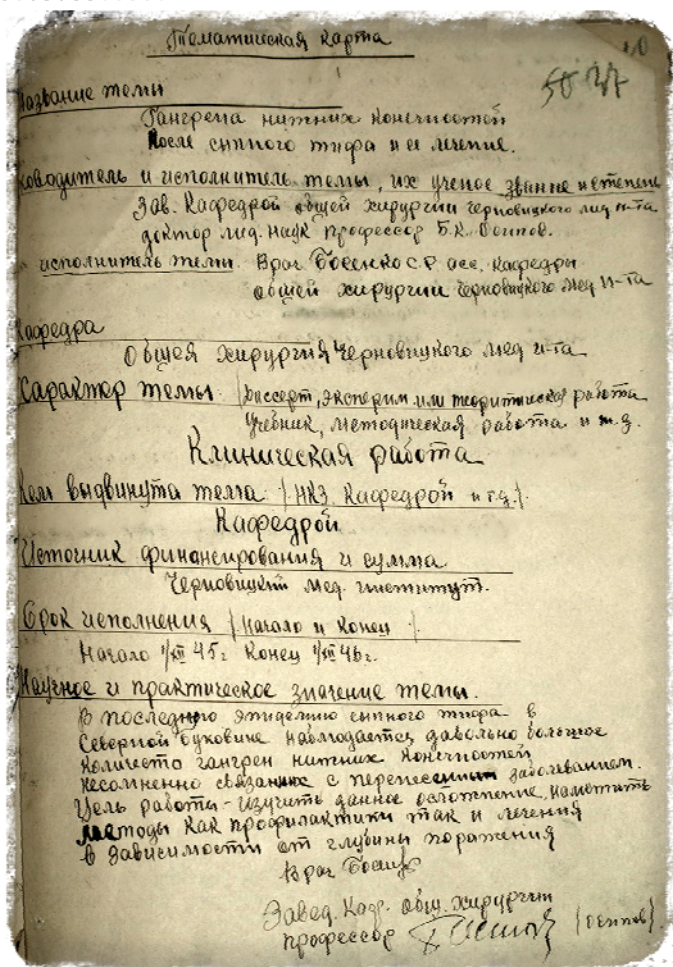 Тематическая карта
10
50
Название темы
Гангрена нижних конечностей
После сыпного тифа и ее лечение.
ководитель и исполнитель темы, их ученое звание и степень
Зав. Кафедрой общей хирургии Черновицкого мед и-та
доктор мед. наук Профессор Б.К. Осипов.
исполнитель темы. Врач Босенко С.Р асс. кафедры
общей хирургии Черновицкого мед и-та
Кафедра
Общая хирургия Черновицкого мед и-та
Характер темы (диссерт, эксперим или теоритическая работа
Учебник, методическая работа и т.д.
Клиническая работа
Кем выдвинута тема (НКЗ, Кафедрой и т.д.)
Кафедрой
Источник финансирования и сумма
Черновицкий мед. институт.
Срок исполнения (Начало и Конец).
Начало 1/XII 45г Конец 1/XII 46г.
Научное и практическое значение темы.
В последнюю эпидемию сыпного тифа в
Северной Буковине наблюдается давольно большое
количество гангрен нижних конечностей
несомненно связанных с перенесенным заболеванием.
Цель работы - изучить данное осложнение, наметить
методы как профилактики так и лечения
в зависимости от глубины поражения
Врач
Завед. Каф. общ. хирургии
профессор (Осипов).